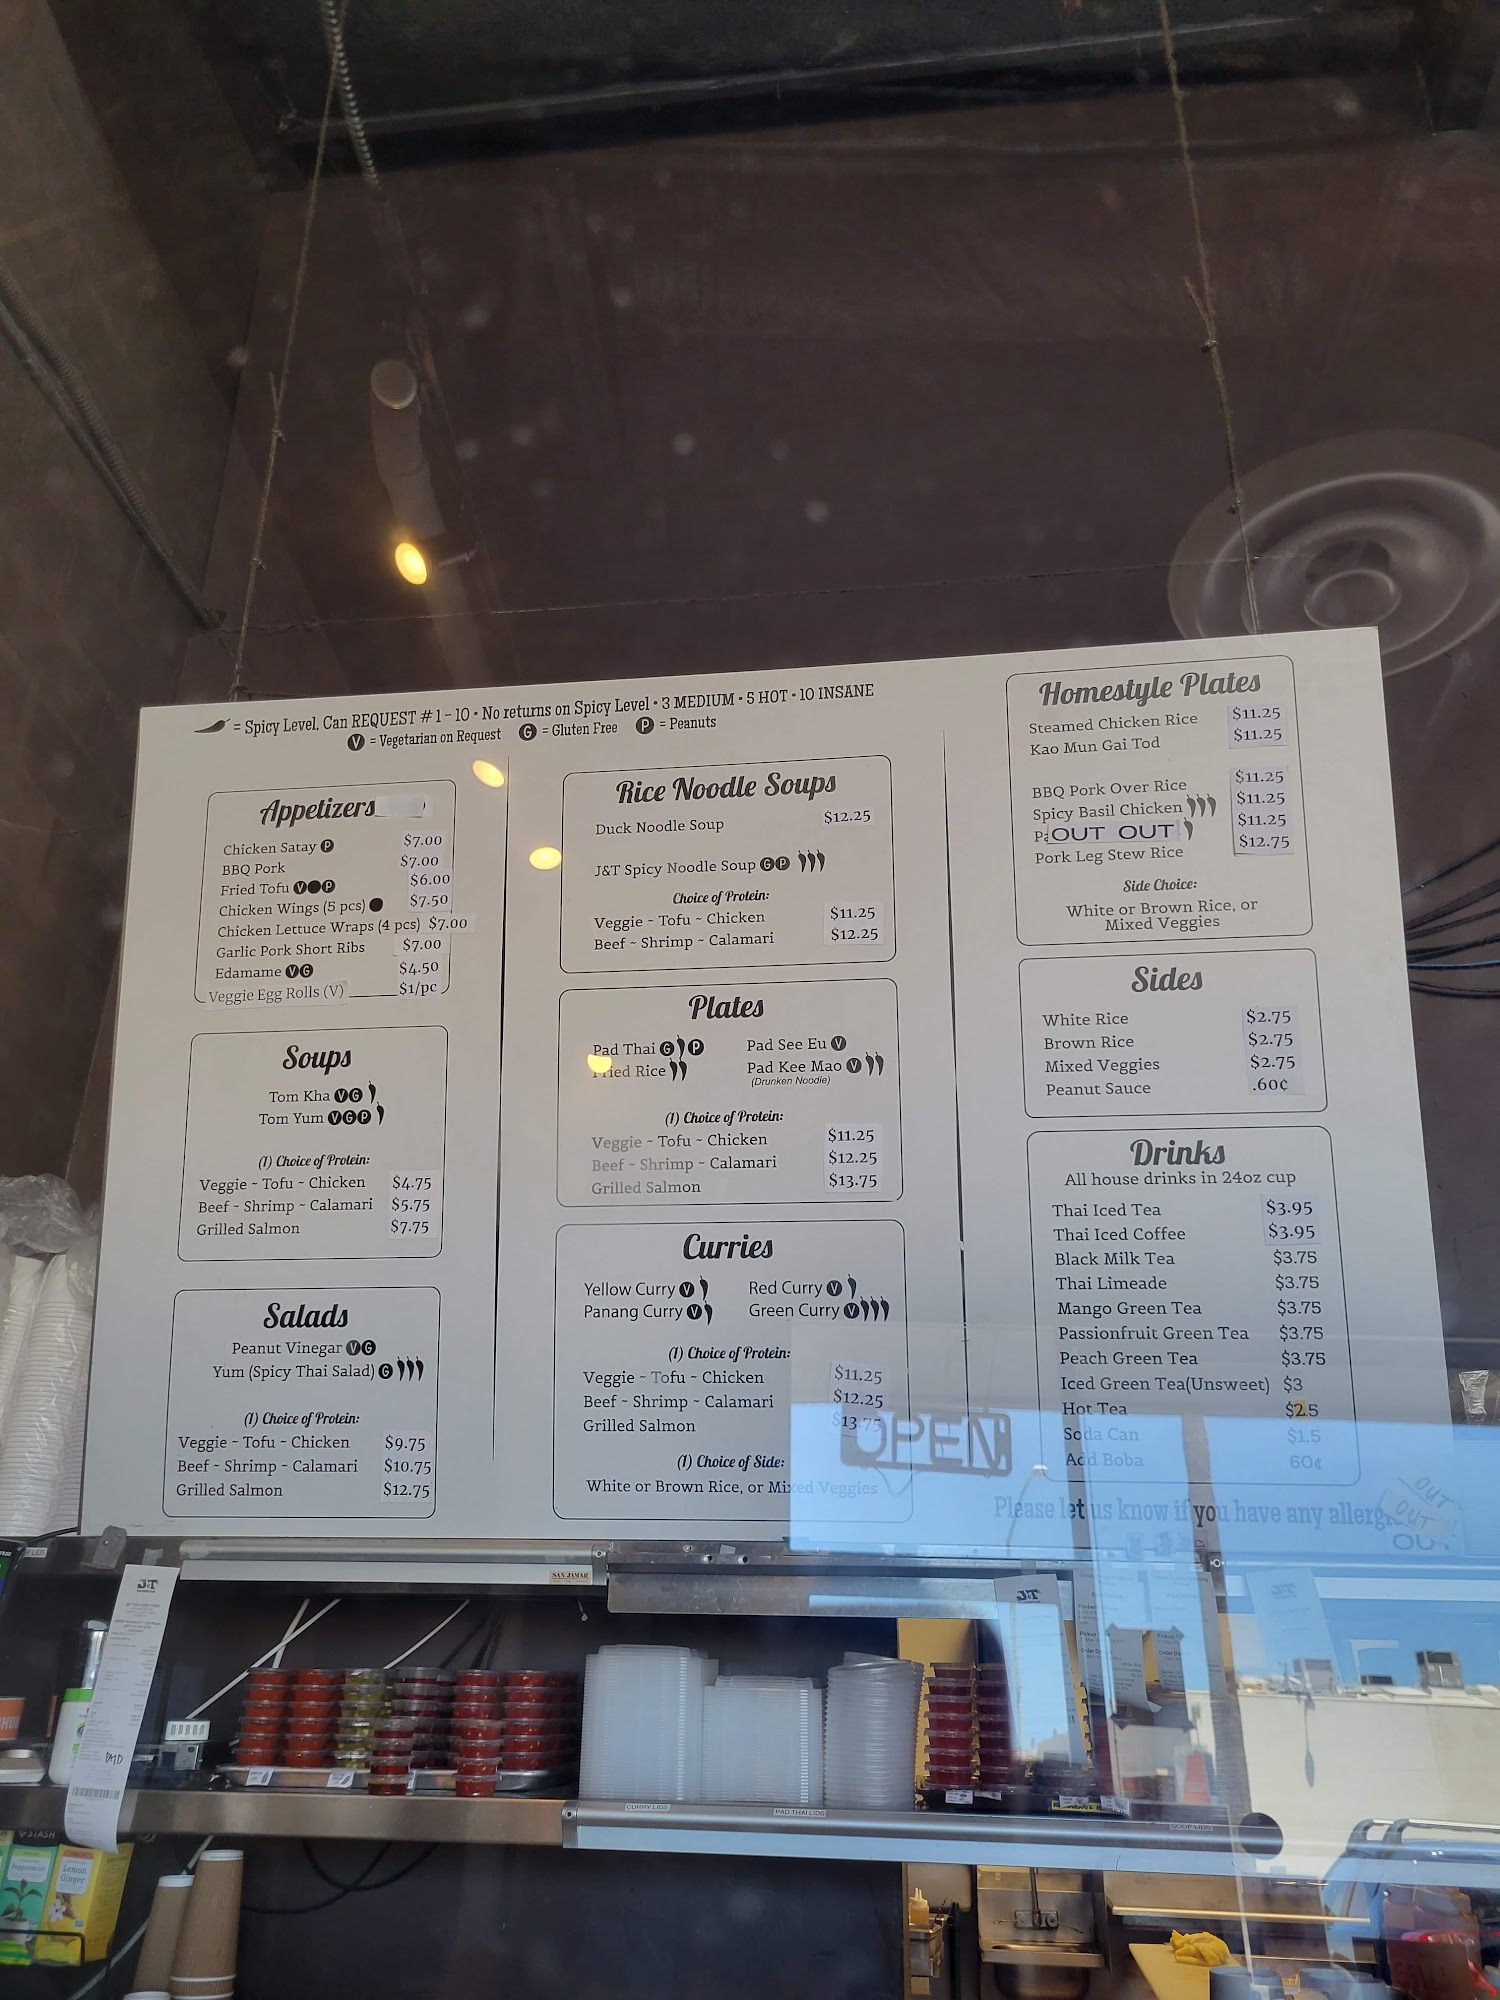 = Spicy Level, Can REQUEST # 1 - 10 • No returns on Spicy Level • 3 MEDIUM • 5 HOT • 10 INSANE
V = Vegetarian on Request G = Gluten Free P = Peanuts
Appetizers
Chicken Satay P $7.00
BBQ Pork $7.00
Fried Tofu V P $6.00
Chicken Wings (5 pcs) $7.50
Chicken Lettuce Wraps (4 pcs) $7.00
Garlic Pork Short Ribs $7.00
Edamame V G $4.50
Veggie Egg Rolls (V) $1/pc
Soups
Tom Kha V G
Tom Yum V G P
(1) Choice of Protein:
Veggie ~ Tofu ~ Chicken $4.75
Beef ~ Shrimp ~ Calamari $5.75
Grilled Salmon $7.75
Salads
Peanut Vinegar V G
Yum (Spicy Thai Salad) G
(1) Choice of Protein:
Veggie ~ Tofu ~ Chicken $9.75
Beef ~ Shrimp ~ Calamari $10.75
Grilled Salmon $12.75
Rice Noodle Soups
Duck Noodle Soup $12.25
J&T Spicy Noodle Soup G P
Choice of Protein:
Veggie ~ Tofu ~ Chicken $11.25
Beef ~ Shrimp ~ Calamari $12.25
Plates
Pad Thai G P Pad See Eu V
Fried Rice Pad Kee Mao V
(Drunken Noodle)
(1) Choice of Protein:
Veggie ~ Tofu ~ Chicken $11.25
Beef ~ Shrimp ~ Calamari $12.25
Grilled Salmon $13.75
Curries
Yellow Curry V Red Curry V
Panang Curry V Green Curry V
(1) Choice of Protein:
Veggie ~ Tofu ~ Chicken $11.25
Beef ~ Shrimp ~ Calamari $12.25
Grilled Salmon $13.75
(1) Choice of Side:
White or Brown Rice, or Mixed Veggies
Homestyle Plates
Steamed Chicken Rice $11.25
Kao Mun Gai Tod $11.25
BBQ Pork Over Rice $11.25
Spicy Basil Chicken $11.25
OUT OUT $11.25
Pork Leg Stew Rice $12.75
Side Choice:
White or Brown Rice, or
Mixed Veggies
Sides
White Rice $2.75
Brown Rice $2.75
Mixed Veggies $2.75
Peanut Sauce .60¢
Drinks
All house drinks in 24oz cup
Thai Iced Tea $3.95
Thai Iced Coffee $3.95
Black Milk Tea $3.75
Thai Limeade $3.75
Mango Green Tea $3.75
Passionfruit Green Tea $3.75
Peach Green Tea $3.75
Iced Green Tea(Unsweet) $3
Hot Tea $2.5
Soda Can $1.5
Add Boba 60¢
OPEN
Please let us know if you have any
OUT
OUT
SAN JAMAR
J&T
PAID
J&T
CURRY LIDS
PAD THAI LIDS
SOUP LIDS
STASH
Peppermint
Lemon
Ginger